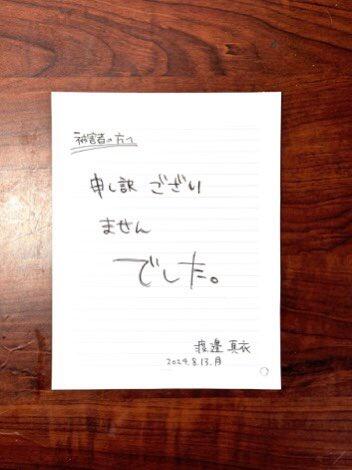 被害者の方へ
申し訳ござい
ません
でした。
渡邊 真衣
2024.8.13.月